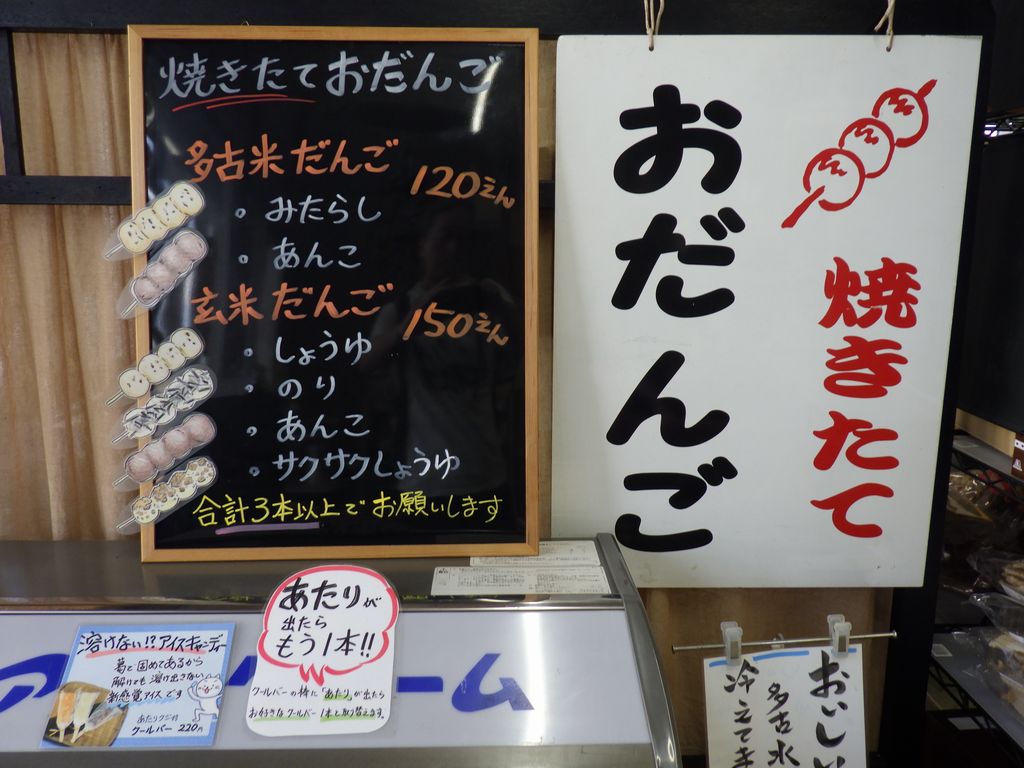 焼きたておだんご
多古米だんご 120えん
。みたらし
。あんこ
玄米だんご 150えん
。しょうゆ
。のり
。あんこ
。サクサクしょうゆ
合計3本以上でお願いします
おだんご
焼きたて
溶けない!?アイスキャンディー
葛で固めてあるから
解けても溶け出さない
新感覚アイスです
あたりクジ付
クールバー 220円
あたりが
出たら
もう1本!!
クールバーの棒に「あたり」が出たら
お好きなクールバー1本と取替えます。
ーム
おいし
多古水
冷立てき